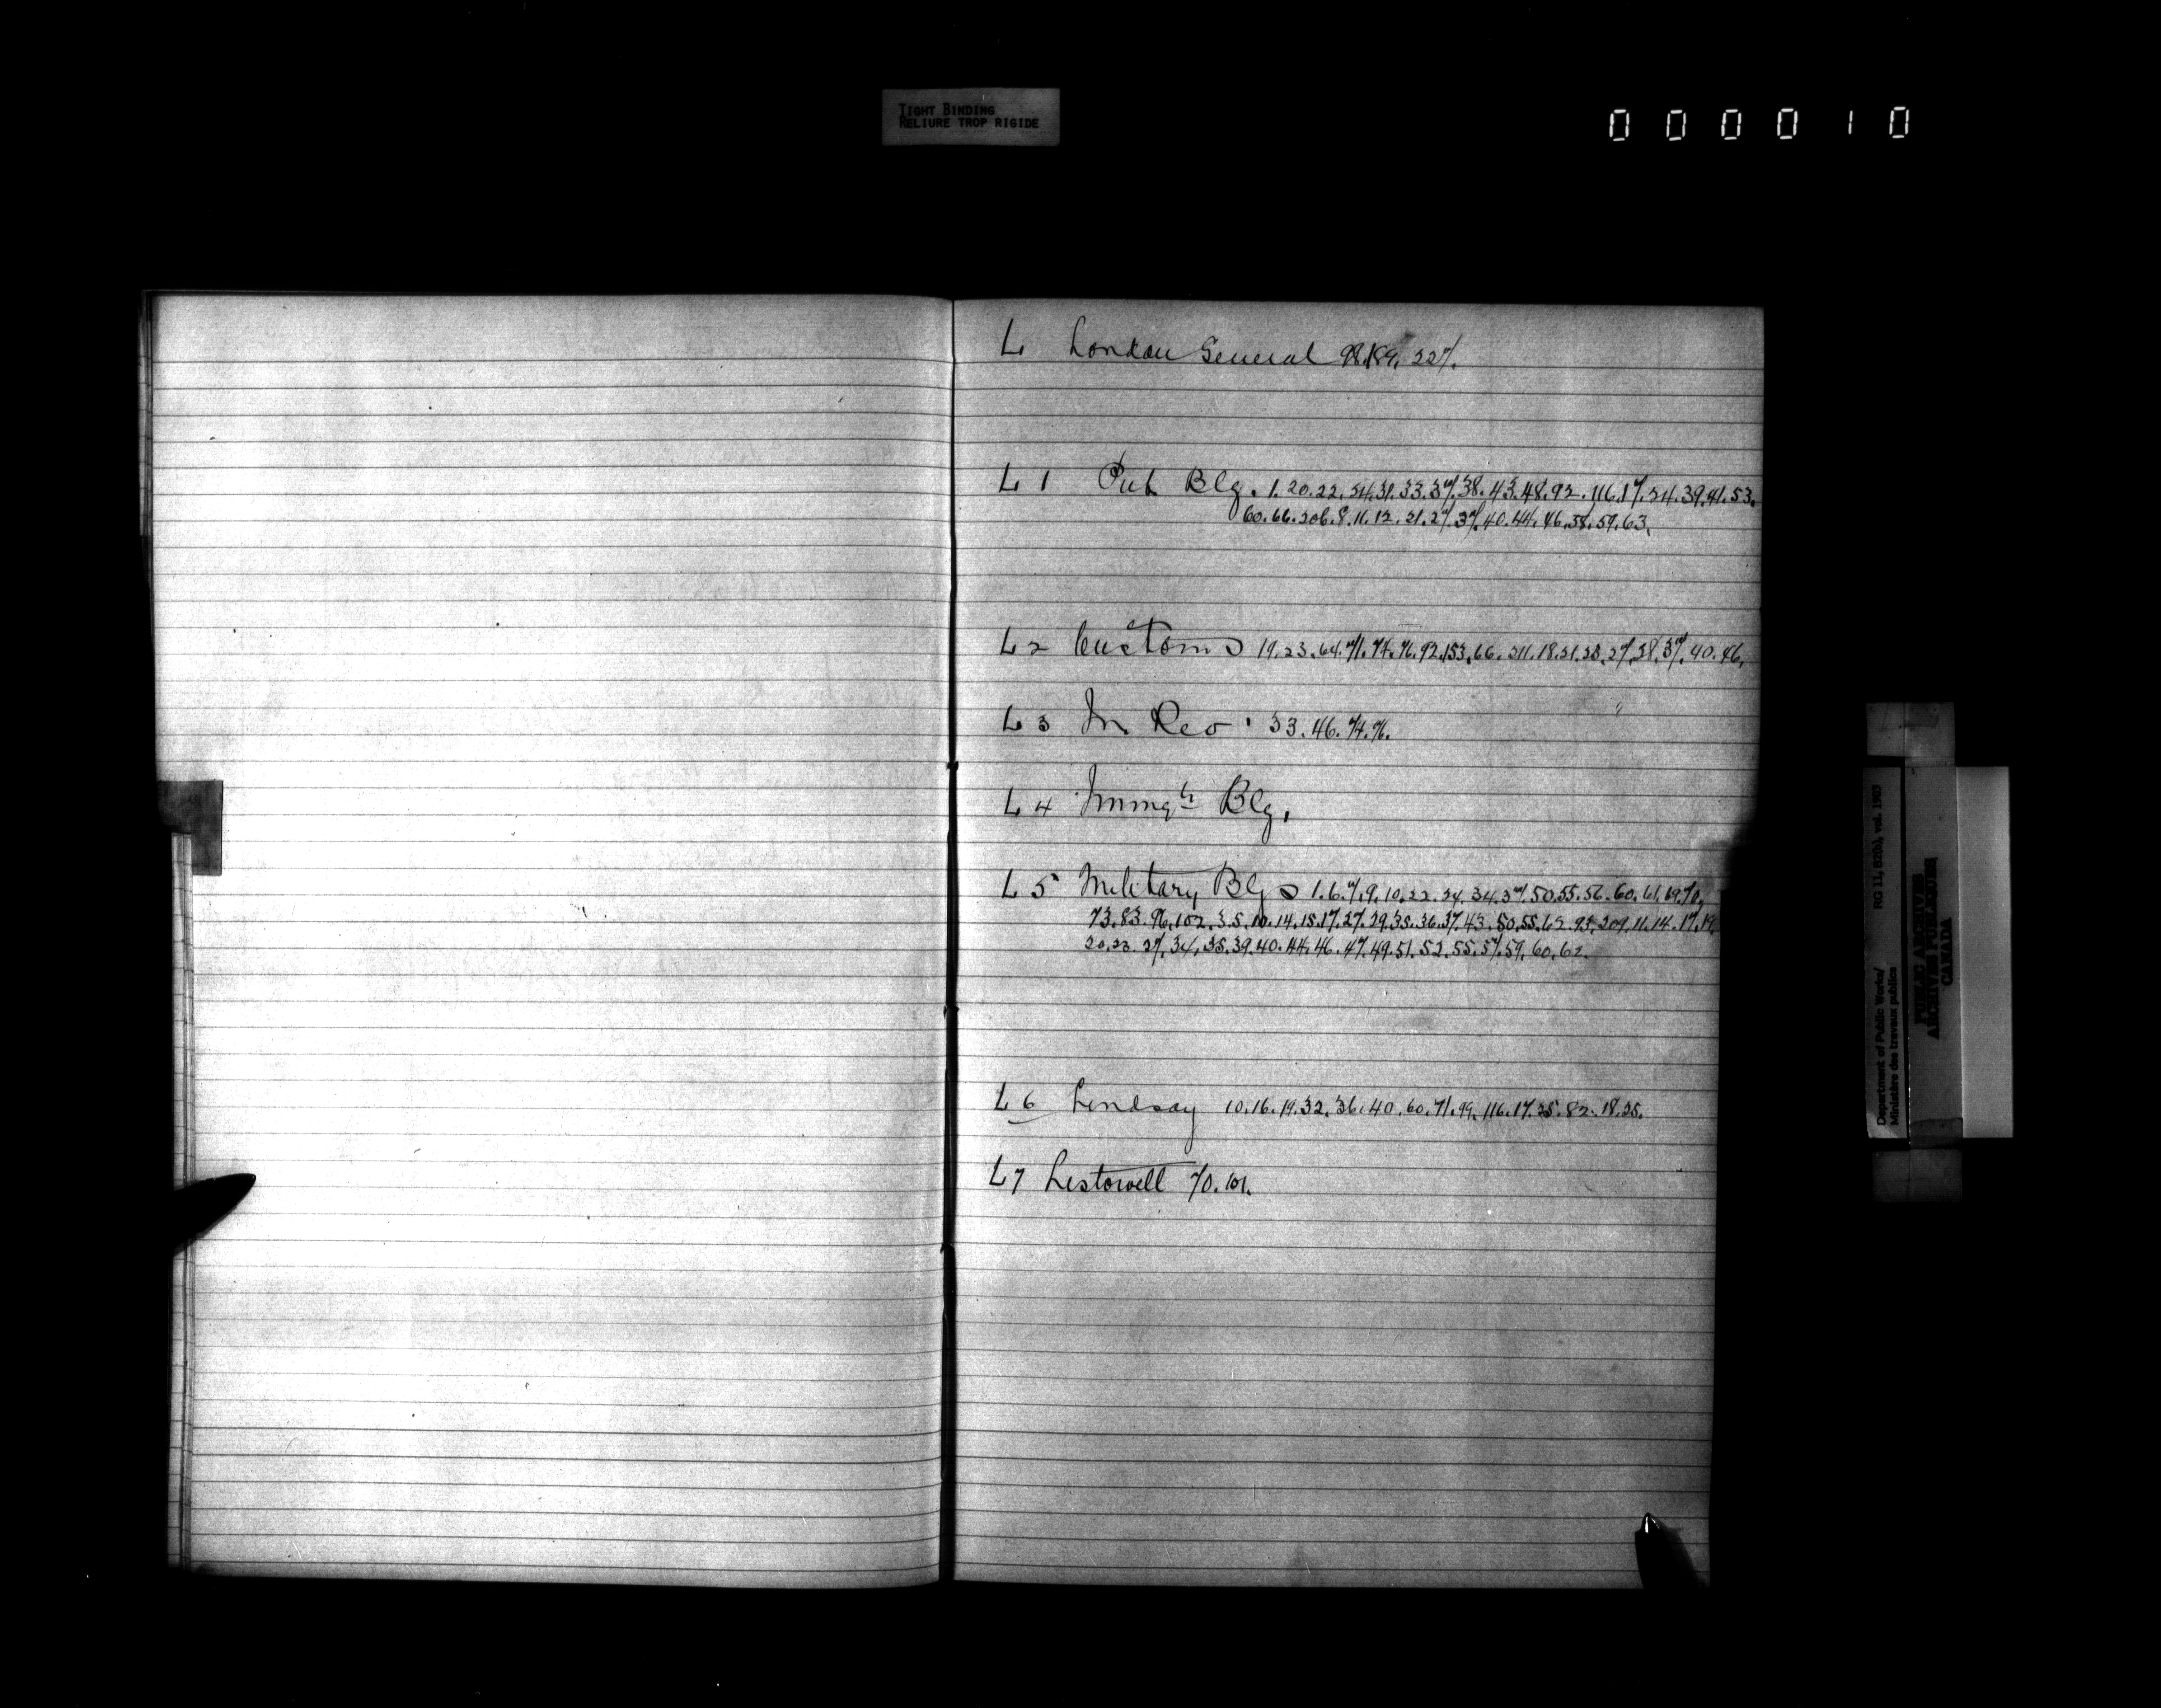 TIGHT BINDING
RELIURE TROP RIGIDE
000010
L London General 98.189. 227.
L 1 Pub Blg. 1.20.22.24.31.33.37.38.43.48.92.116.17.24.39.41.53.
60.66.206.8.11.12.21.27.37.40.44.46.58.59.63.
L 2 Customs 19.23.64.71.74.76.92.153.66.211.18.21.28.27.38.37.40.46.
L 3 In Rev. 33.46.74.76.
L 4 Immgn Blg.
L 5 Military Blgs 1.6.7.9.10.22.24.34.37.50.55.56.60.61.69.70.
73.83.96.102.3.5.10.14.15.17.27.29.35.36.37.43.50.55.62.93.209.11.14.17.19.
20.23.27.34.35.39.40.44.46.47.49.51.52.55.57.59.60.62.
L 6 Lindsay 10.16.19.32.36.40.60.71.99.116.17.25.82.18.25.
L 7 Listowell 70.101.
Department of Public Works/
Ministère des travaux publics
RG 11, B2(b), vol. 1983
PUBLIC ARCHIVES
ARCHIVES PUBLIQUES
CANADA